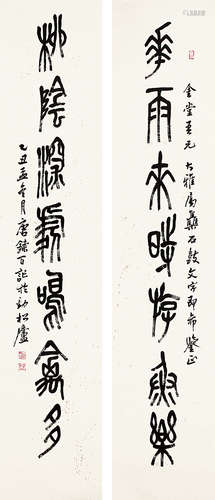 華雨來時游魚樂
金堂吾兄大雅屬集石鼓文字即希鑒正
柳陰深處鳴禽多
乙丑孟冬月唐記於勁松廬